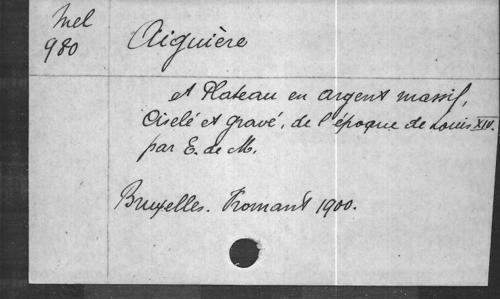 Mel
980
Aiguière
et Plateau en argent massif,
Ciselé et gravé, de l'époque de Louis XIV.
par E. de M.
Bruxelles. Fromant 1900.